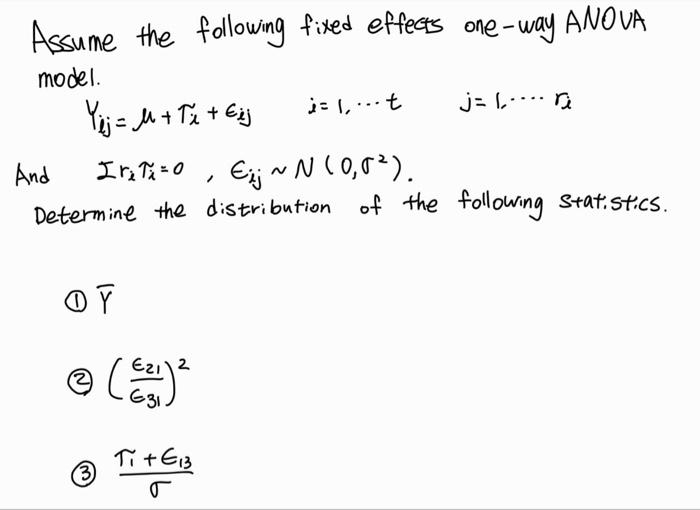 Assume the following fixed effects one-way ANOVA
model.
Yij = μ + τi + εij   i = 1, ... t   j = 1, .... ri
And Σriτi = 0 , εij ~ N (0, σ²).
Determine the distribution of the following statistics.
① Ȳ
② (ε21/ε31)²
③ (τi + ε13)/σ